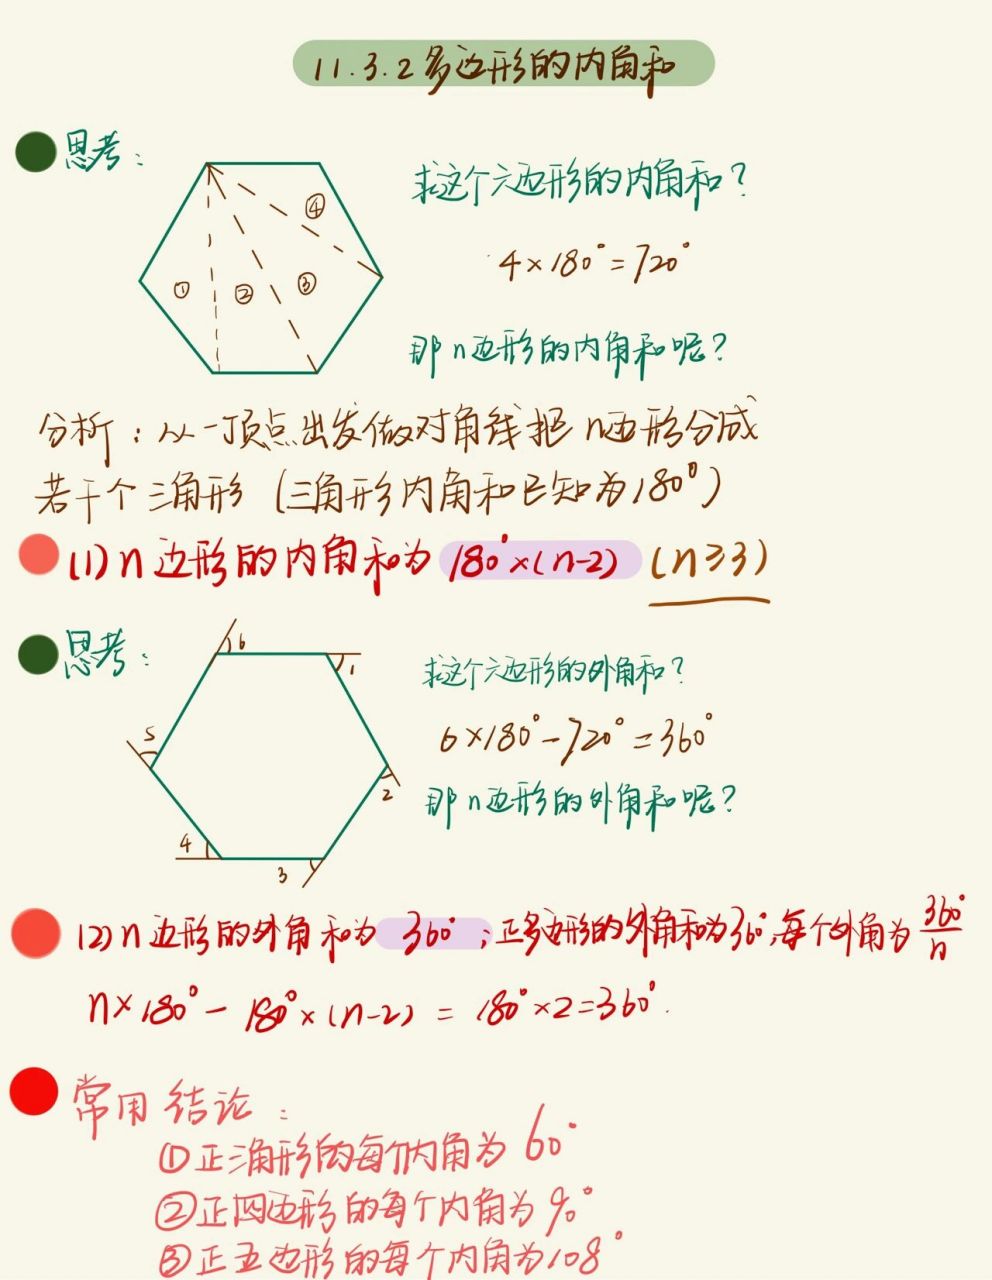 11.3.2多边形的内角和
思考：
④
① ② ③
求这个六边形的内角和？
4×180°=720°
那n边形的内角和呢？
分析：从一顶点出发做对角线把n边形分成
若干个三角形（三角形内角和已知为180°）
(1)n边形的内角和为180°×(n-2)(n≥3)
思考：
6
1
5
2
4
3
求这个六边形的外角和？
6×180°-720°=360°
那n边形的外角和呢？
(2)n边形的外角和为360°；正多边形的外角和为360°,每个外角为360°/n
n×180°-180°×(n-2)=180°×2=360°.
常用结论：
①正三角形的每个内角为60°
②正四边形的每个内角为90°
③正五边形的每个内角为108°